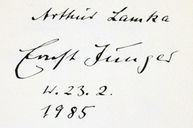 Arthur Lamka
Ernst Jünger
W. 23. 2.
1985